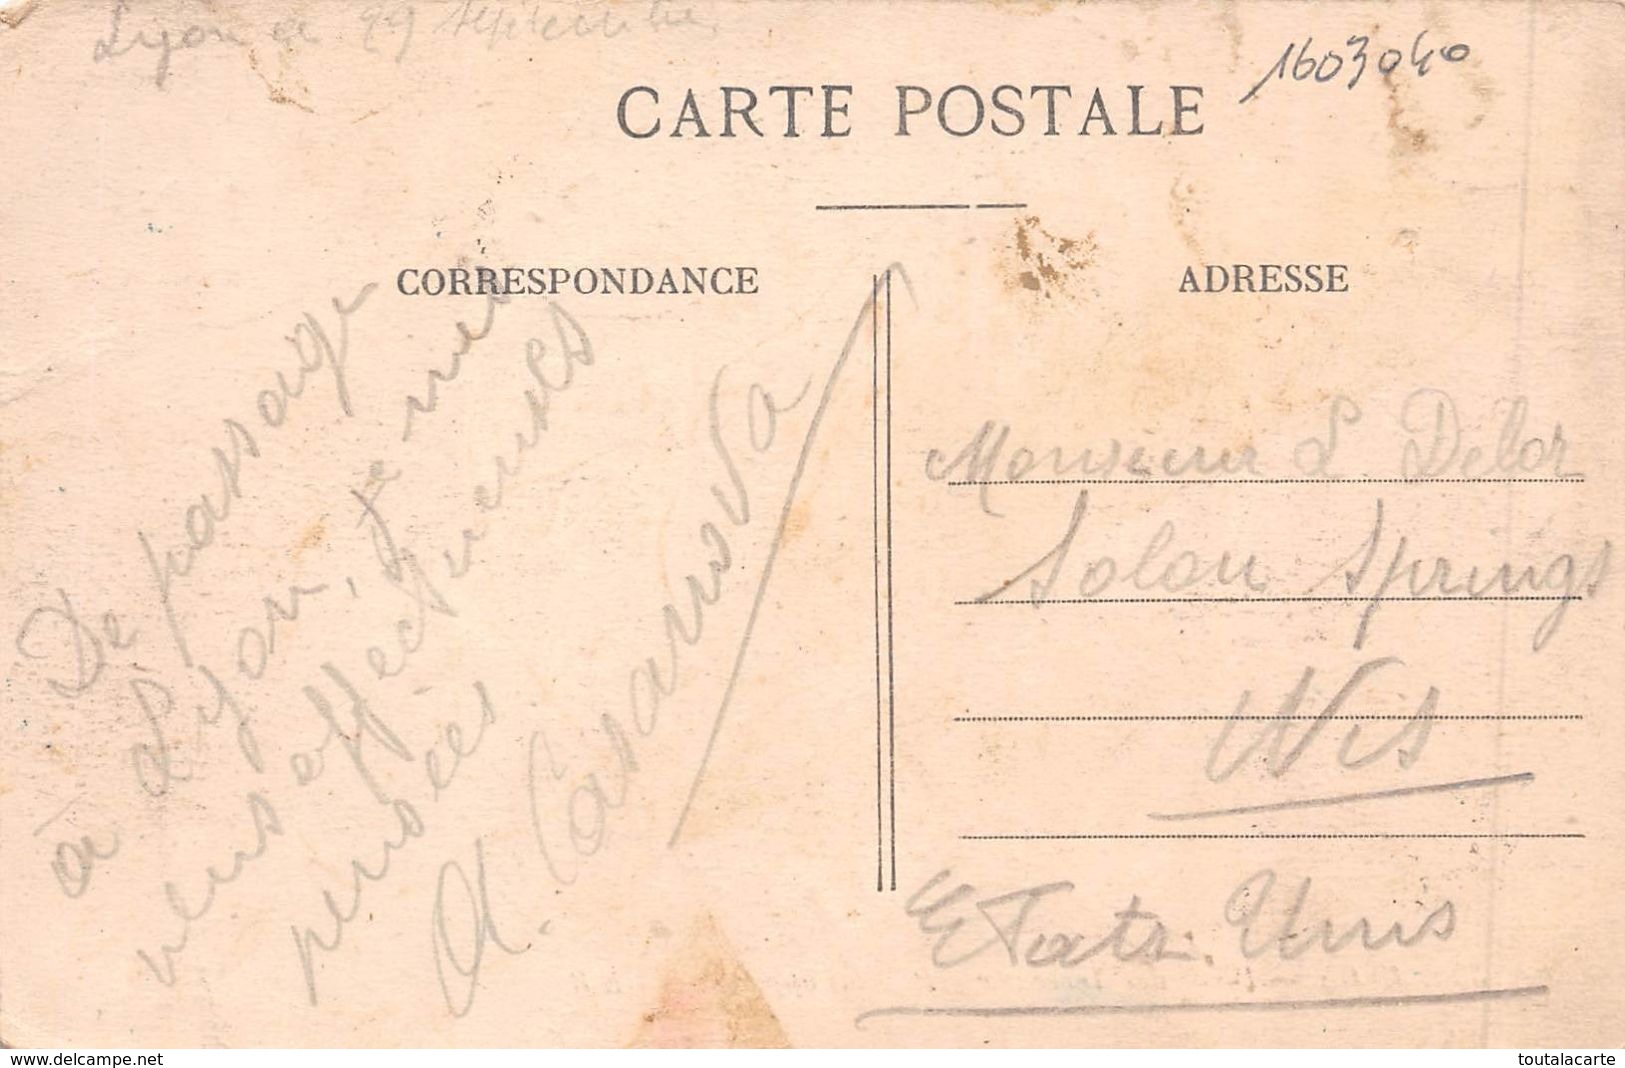 Lyon a 29 septembre
1603040
CARTE POSTALE
CORRESPONDANCE
ADRESSE
De passage
a Lyon, je
vous affectueuses
pensées
A. Casanova
Monsieur L Delor
Solon Springs
Wis
Etats. Unis
www.delcampe.net
toutalacarte